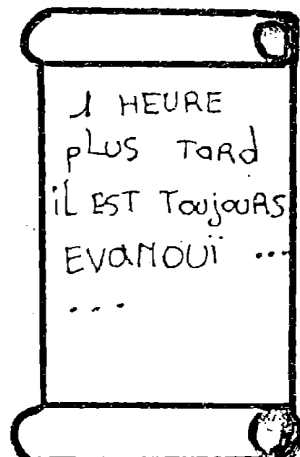 1 HEURE
pLUS TaRd
iL EST ToujouRS
EVaNOUï ...
...